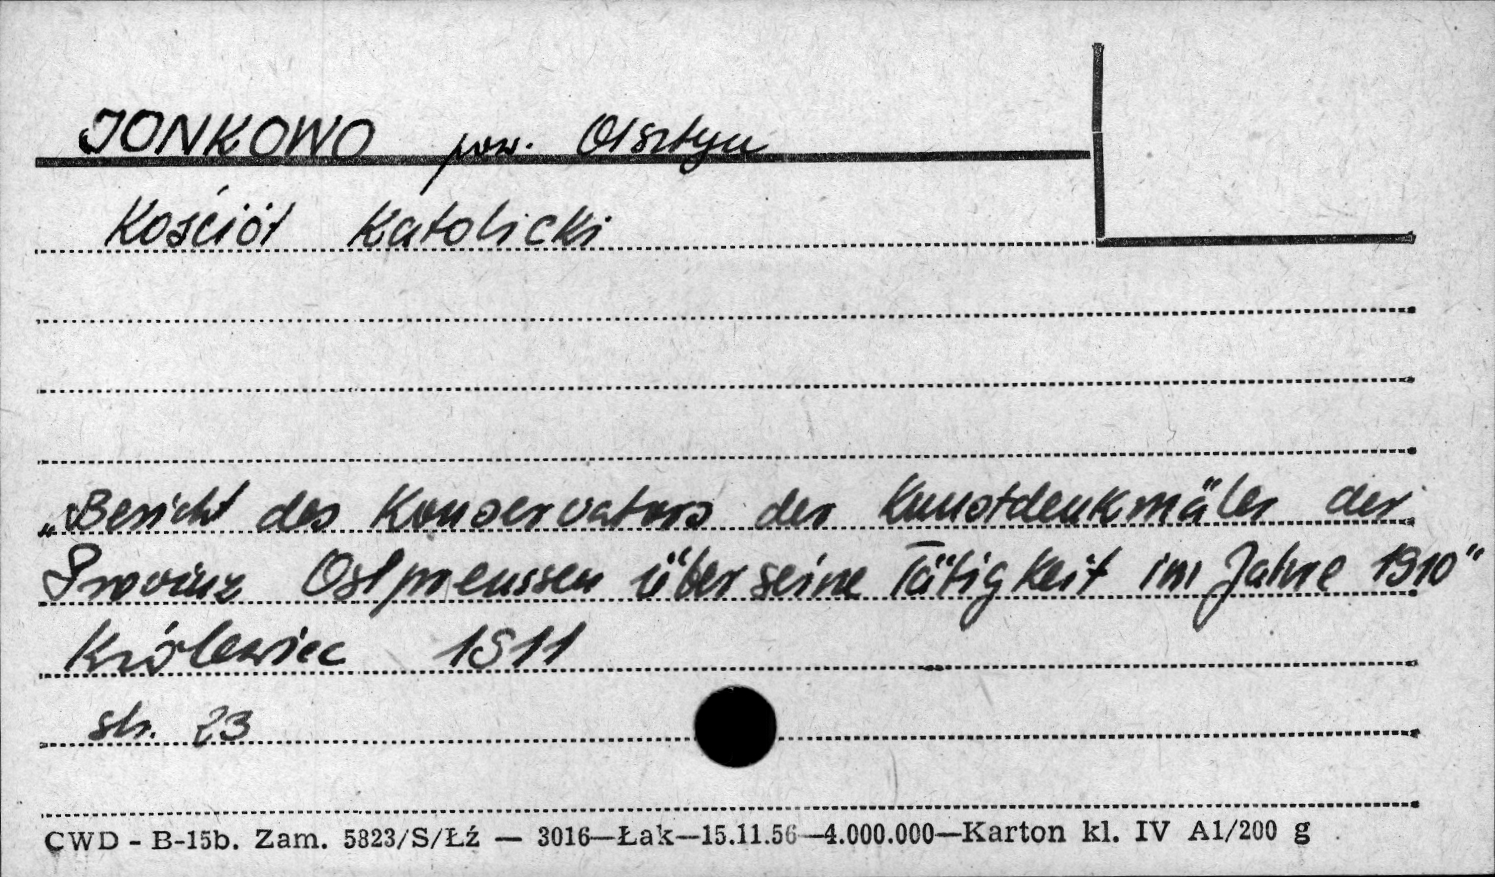 JONKOWO pow. Olsztyn
Kościół Katolicki
„Bericht des Konservators der Kunstdenkmäler der
Provinz Ostpreussen über seine Tätigkeit im Jahre 1910"
Królewiec 1911
str. 23
CWD - B-15b. Zam. 5823/S/Łź — 3016—Łak—15.11.56—4.000.000—Karton kl. IV A1/200 g